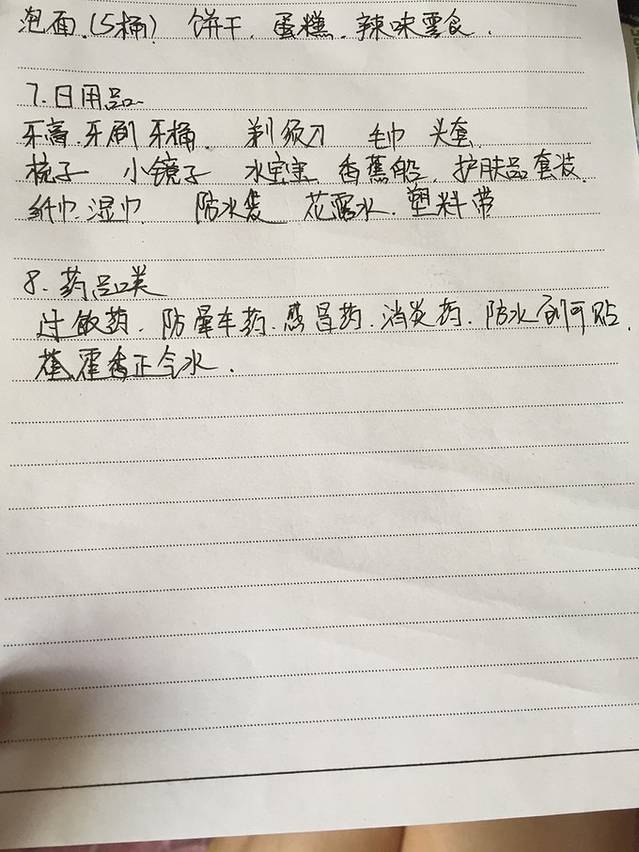 泡面.(5桶) 饼干. 蛋糕. 辣味零食.
7.日用品
牙膏.牙刷 牙桶. 剃须刀 毛巾 头套.
梳子 小镜子 水宝宝 香蕉船. 护肤品套装.
纸巾.湿巾. 防水袋 花露水. 塑料带
8.药品类
过敏药. 防晕车药. 感冒药. 消炎药. 防水创可贴.
藿香正气水.